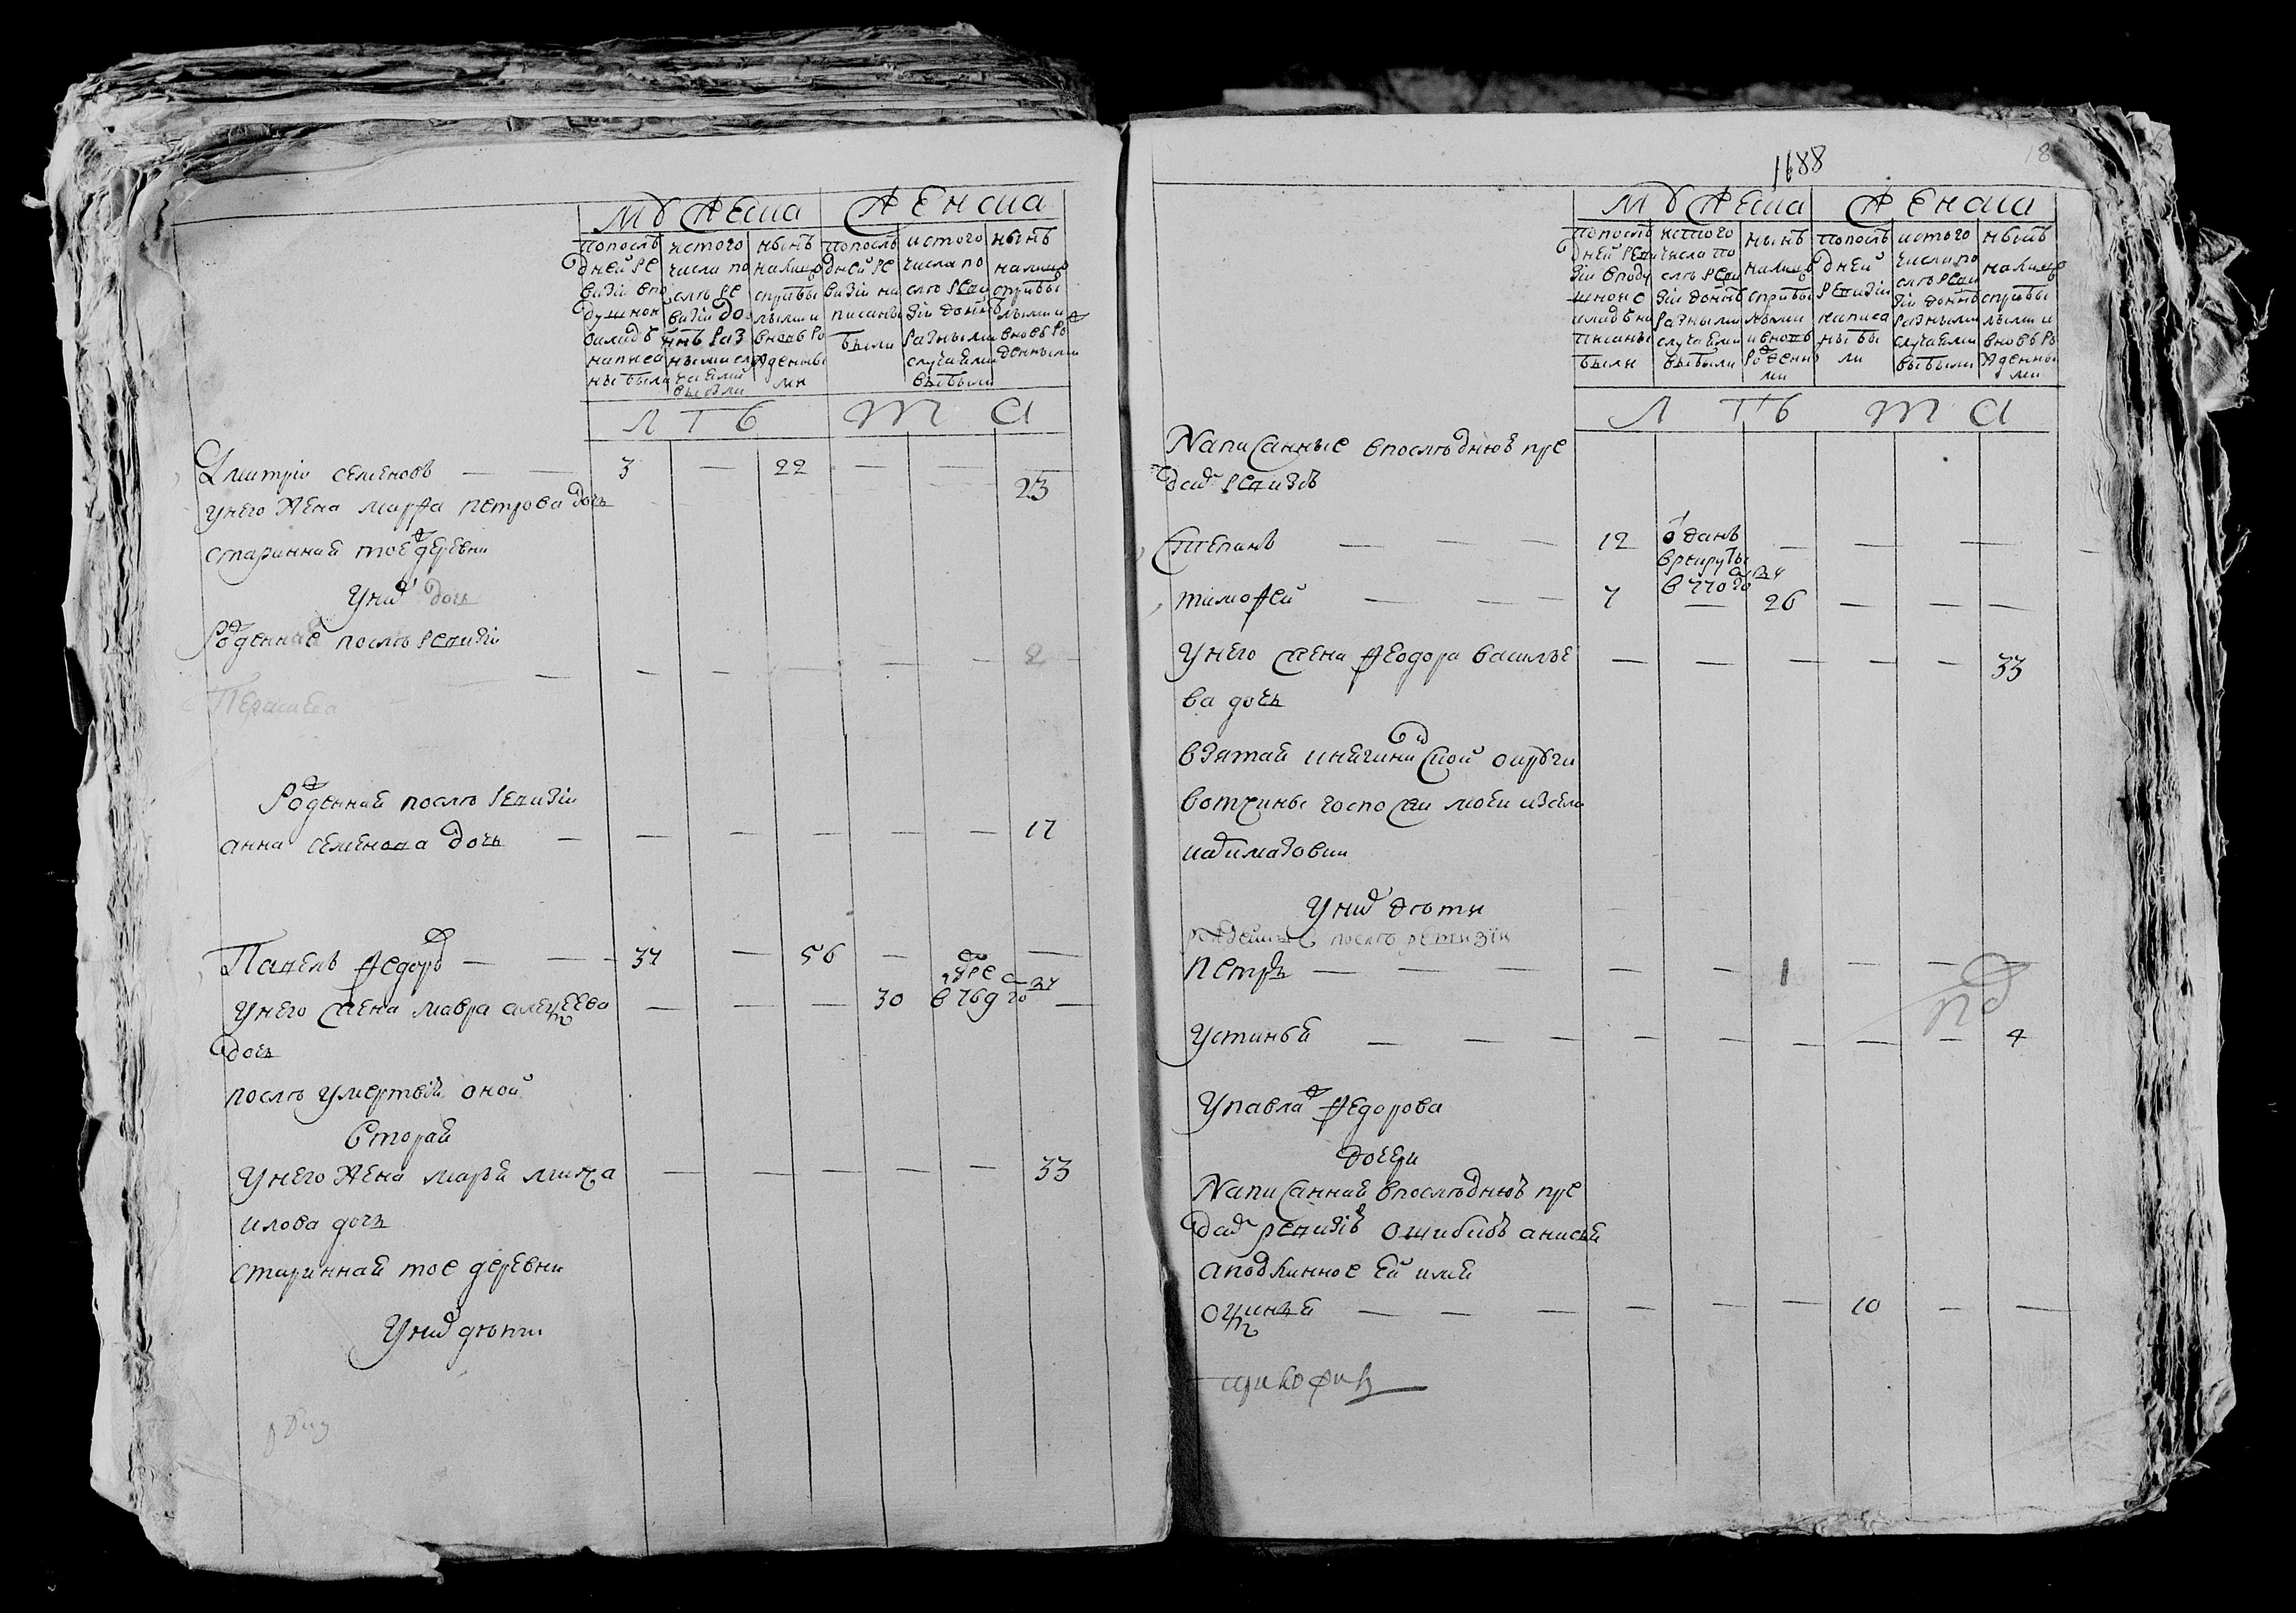 МУЖЕСКА ЖЕНСКА
попослѣ дней ревизіи вподушной окладъ написаны были
истого числа послѣ ревизіи до нынѣ разными случаями выбыли
нынѣ налицо сприбылыми вновь рожденными
попослѣ дней ревизіи написаны были
истого числа послѣ ревизіи донынѣ разными случаями выбыли
нынѣ налицо сприбылыми и вновь рожденными
Л Т Ѣ Т А
Дмитріи семеновъ — — 3 — 22 — — —
унего жена марфа петрова дочь 23
стариннай тоеж деревни
Уних дочь
Рожденнае послѣ ревизіи
— — — — — — 2
Рожденнай послѣ ревизіи
анна семенова дочь — — — — — — 17
Павелъ Федоров — — 34 — 56 — — —
унего жена мавра алексеева — — — 30 умре в 769 го —
дочь
послѣ умертвіи оной
вторая
унего жена марья миха — — — — — 33
илова дочь
стариннай тое деревни
Уних дѣти
1688
МУЖЕСКА ЖЕНСКА
попослѣдней ревизіи вподушной окладъ написаны были
истого числа послѣ ревизіи донынѣ разными случаями выбыли
нынѣ налицо сприбылыми и вновь рожденными
попослѣ дней ревизіи написаны были
истого числа послѣ ревизіи донынѣ разными случаями выбыли
нынѣ налицо сприбылыми и вновь рожденными
Л Т Ѣ Т А
Написанные впослѣднюю пре
дъ ревизію
Степанъ — — — 12 оданъ врекруты в 770 го — — — —
тимофей — — — 7 — 26 — — —
Унего жена Феодора василье — — — — — 33
ва дочь
взятая кнегининской округи
вотчины госпожи
Уних дѣти
рожденные послѣ ревизіи
Петръ — — — — — 1 — — —
Устинья — — — — — — — — 4
Упавлаж Федорова
дочери
Написанная впослѣднюю пре
дъ ревизію ошибкою анисья
аподлинное ей имя
оксинья — — — — — — 10 — —